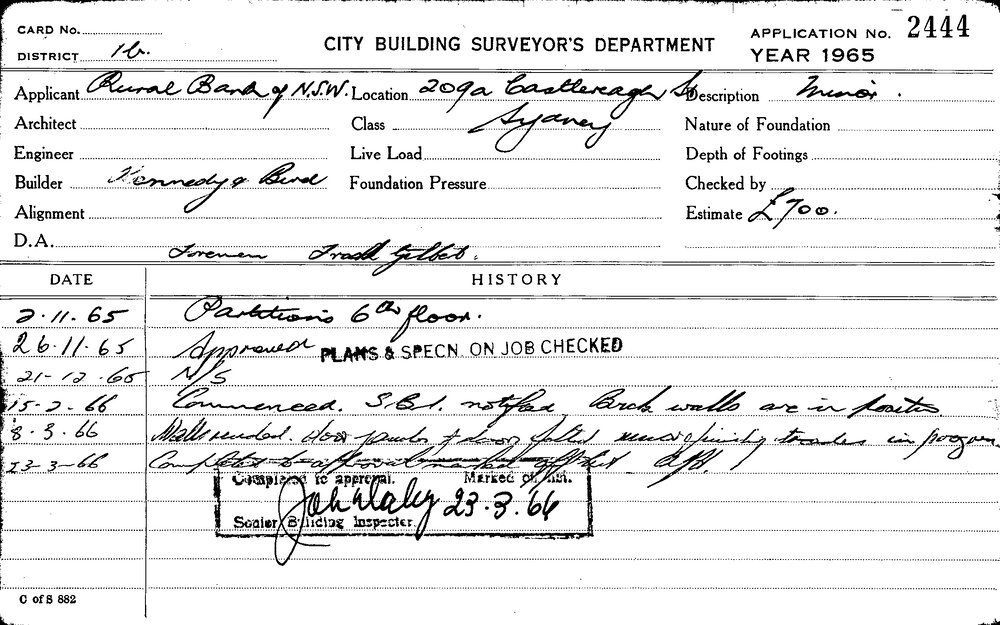 CARD No.
DISTRICT 1b.
CITY BUILDING SURVEYOR'S DEPARTMENT
APPLICATION No. 2444
YEAR 1965
Applicant Rural Bank of N.S.W. Location 209a Castlereagh St Description Minor.
Architect Class Sydney Nature of Foundation
Engineer Live Load Depth of Footings
Builder Kennedy & Bird Foundation Pressure Checked by
Alignment Estimate £700.
D.A. Foremen Gilbet.
DATE HISTORY
2.11.65 Partitions 6th floor.
26.11.65 Approved PLANS & SPECN. ON JOB CHECKED
21-12-65 N/S
15-2-66 Commenced. S.B.I. notified Brick walls are in position
8.3.66 Walls rendered. Door & door trades in progress
23-3-66 Completed to approval marked off list
Completed to approval. Marked off list.
23.3.66
Senior Building Inspector.
C of S 882